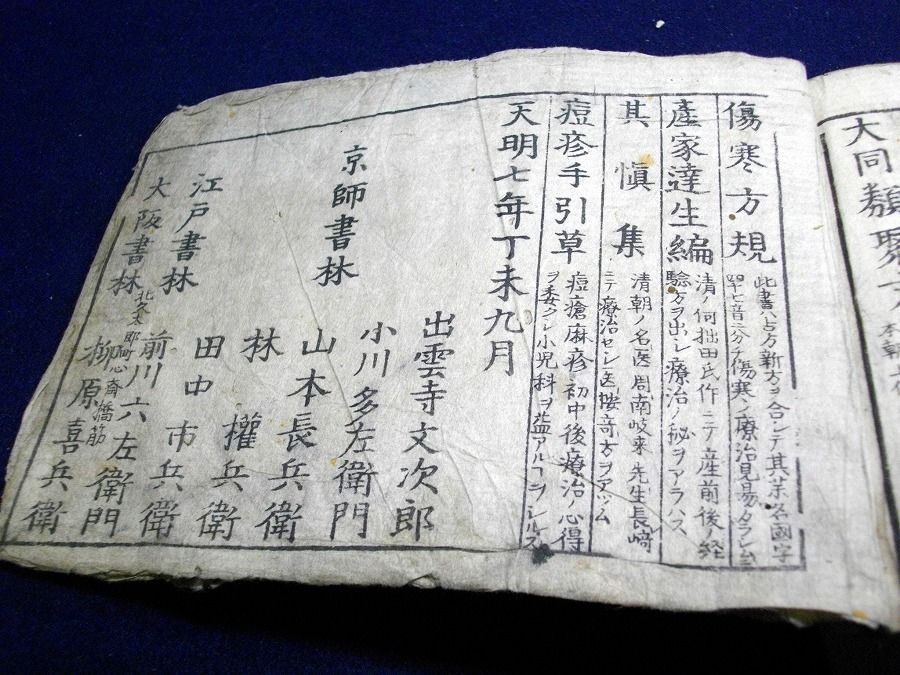 大同類聚方
傷寒方規
此書ハ古方新方ヲ合シテ其茶名國字
産家達生編
清ノ何拙田氏作ニテ産前後ノ経
驗方ヲ出シ療治ノ秘ヲアラハス
其慎集
清朝ノ名医周南岐来先生長﨑
ニテ療治セシ医按奇方ヲアツム
痘疹手引草
痘瘡麻疹初中後療治ノ心得
ヲ委クシ小児科ヲ益アルコヲシルス
天明七年丁未九月
京師書林
出雲寺文次郎
小川多左衛門
山本長兵衛
林權兵衛
江戸書林
田中市兵衛
前川六左衛門
大阪書林
心斎橋筋
柳原喜兵衛